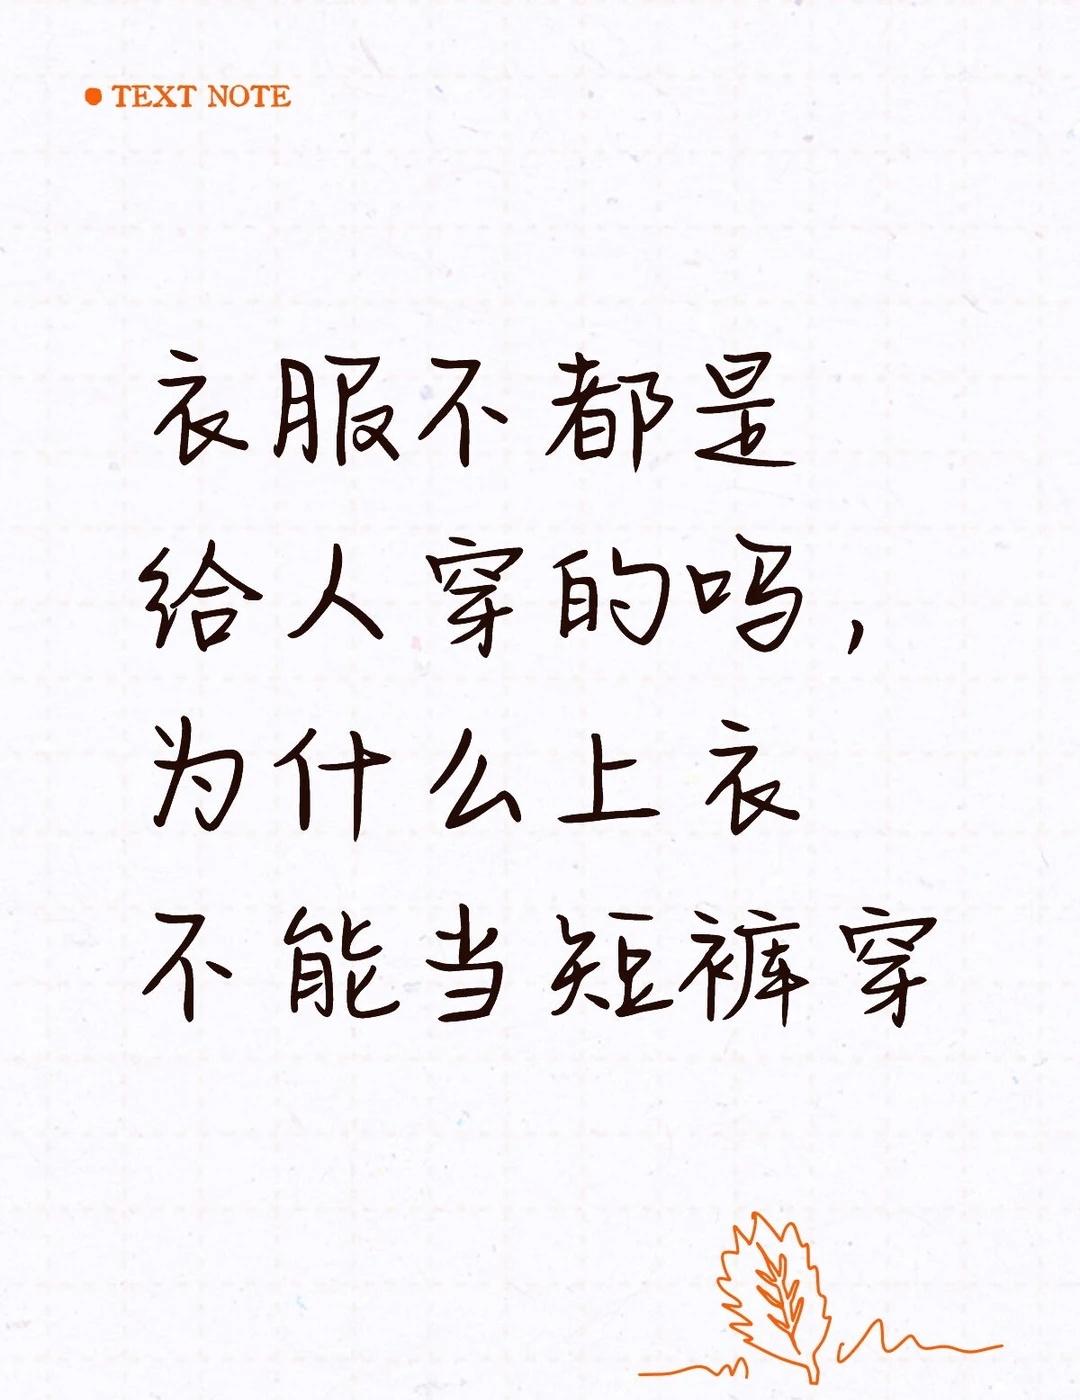 TEXT NOTE
衣服不都是
给人穿的吗，
为什么上衣
不能当短裤穿